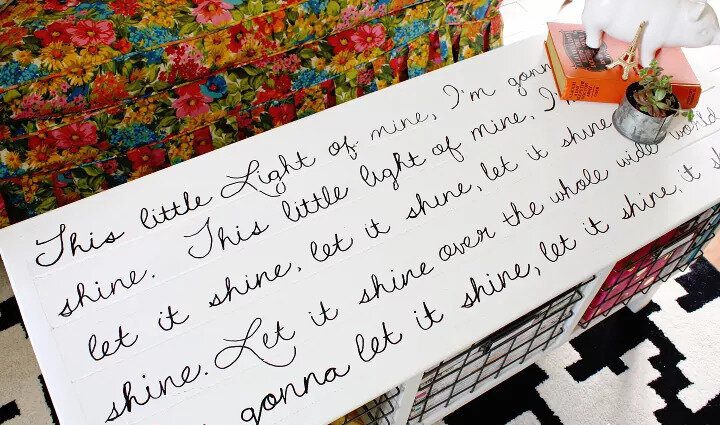 This little Light of mine, I'm gonn
shine. This little light of mine, I'm
let it shine, let it shine, let it shine
shine. Let it shine over the whole wide world
gonna let it shine, let it shine, it s